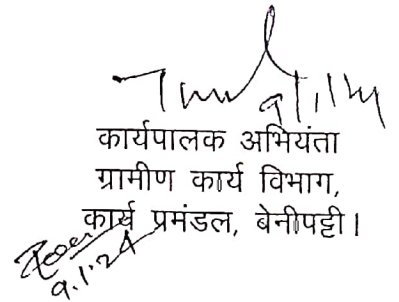 9/1/24
कार्यपालक अभियंता
ग्रामीण कार्य विभाग,
कार्य प्रमंडल, बेनीपट्टी।
9.1.24